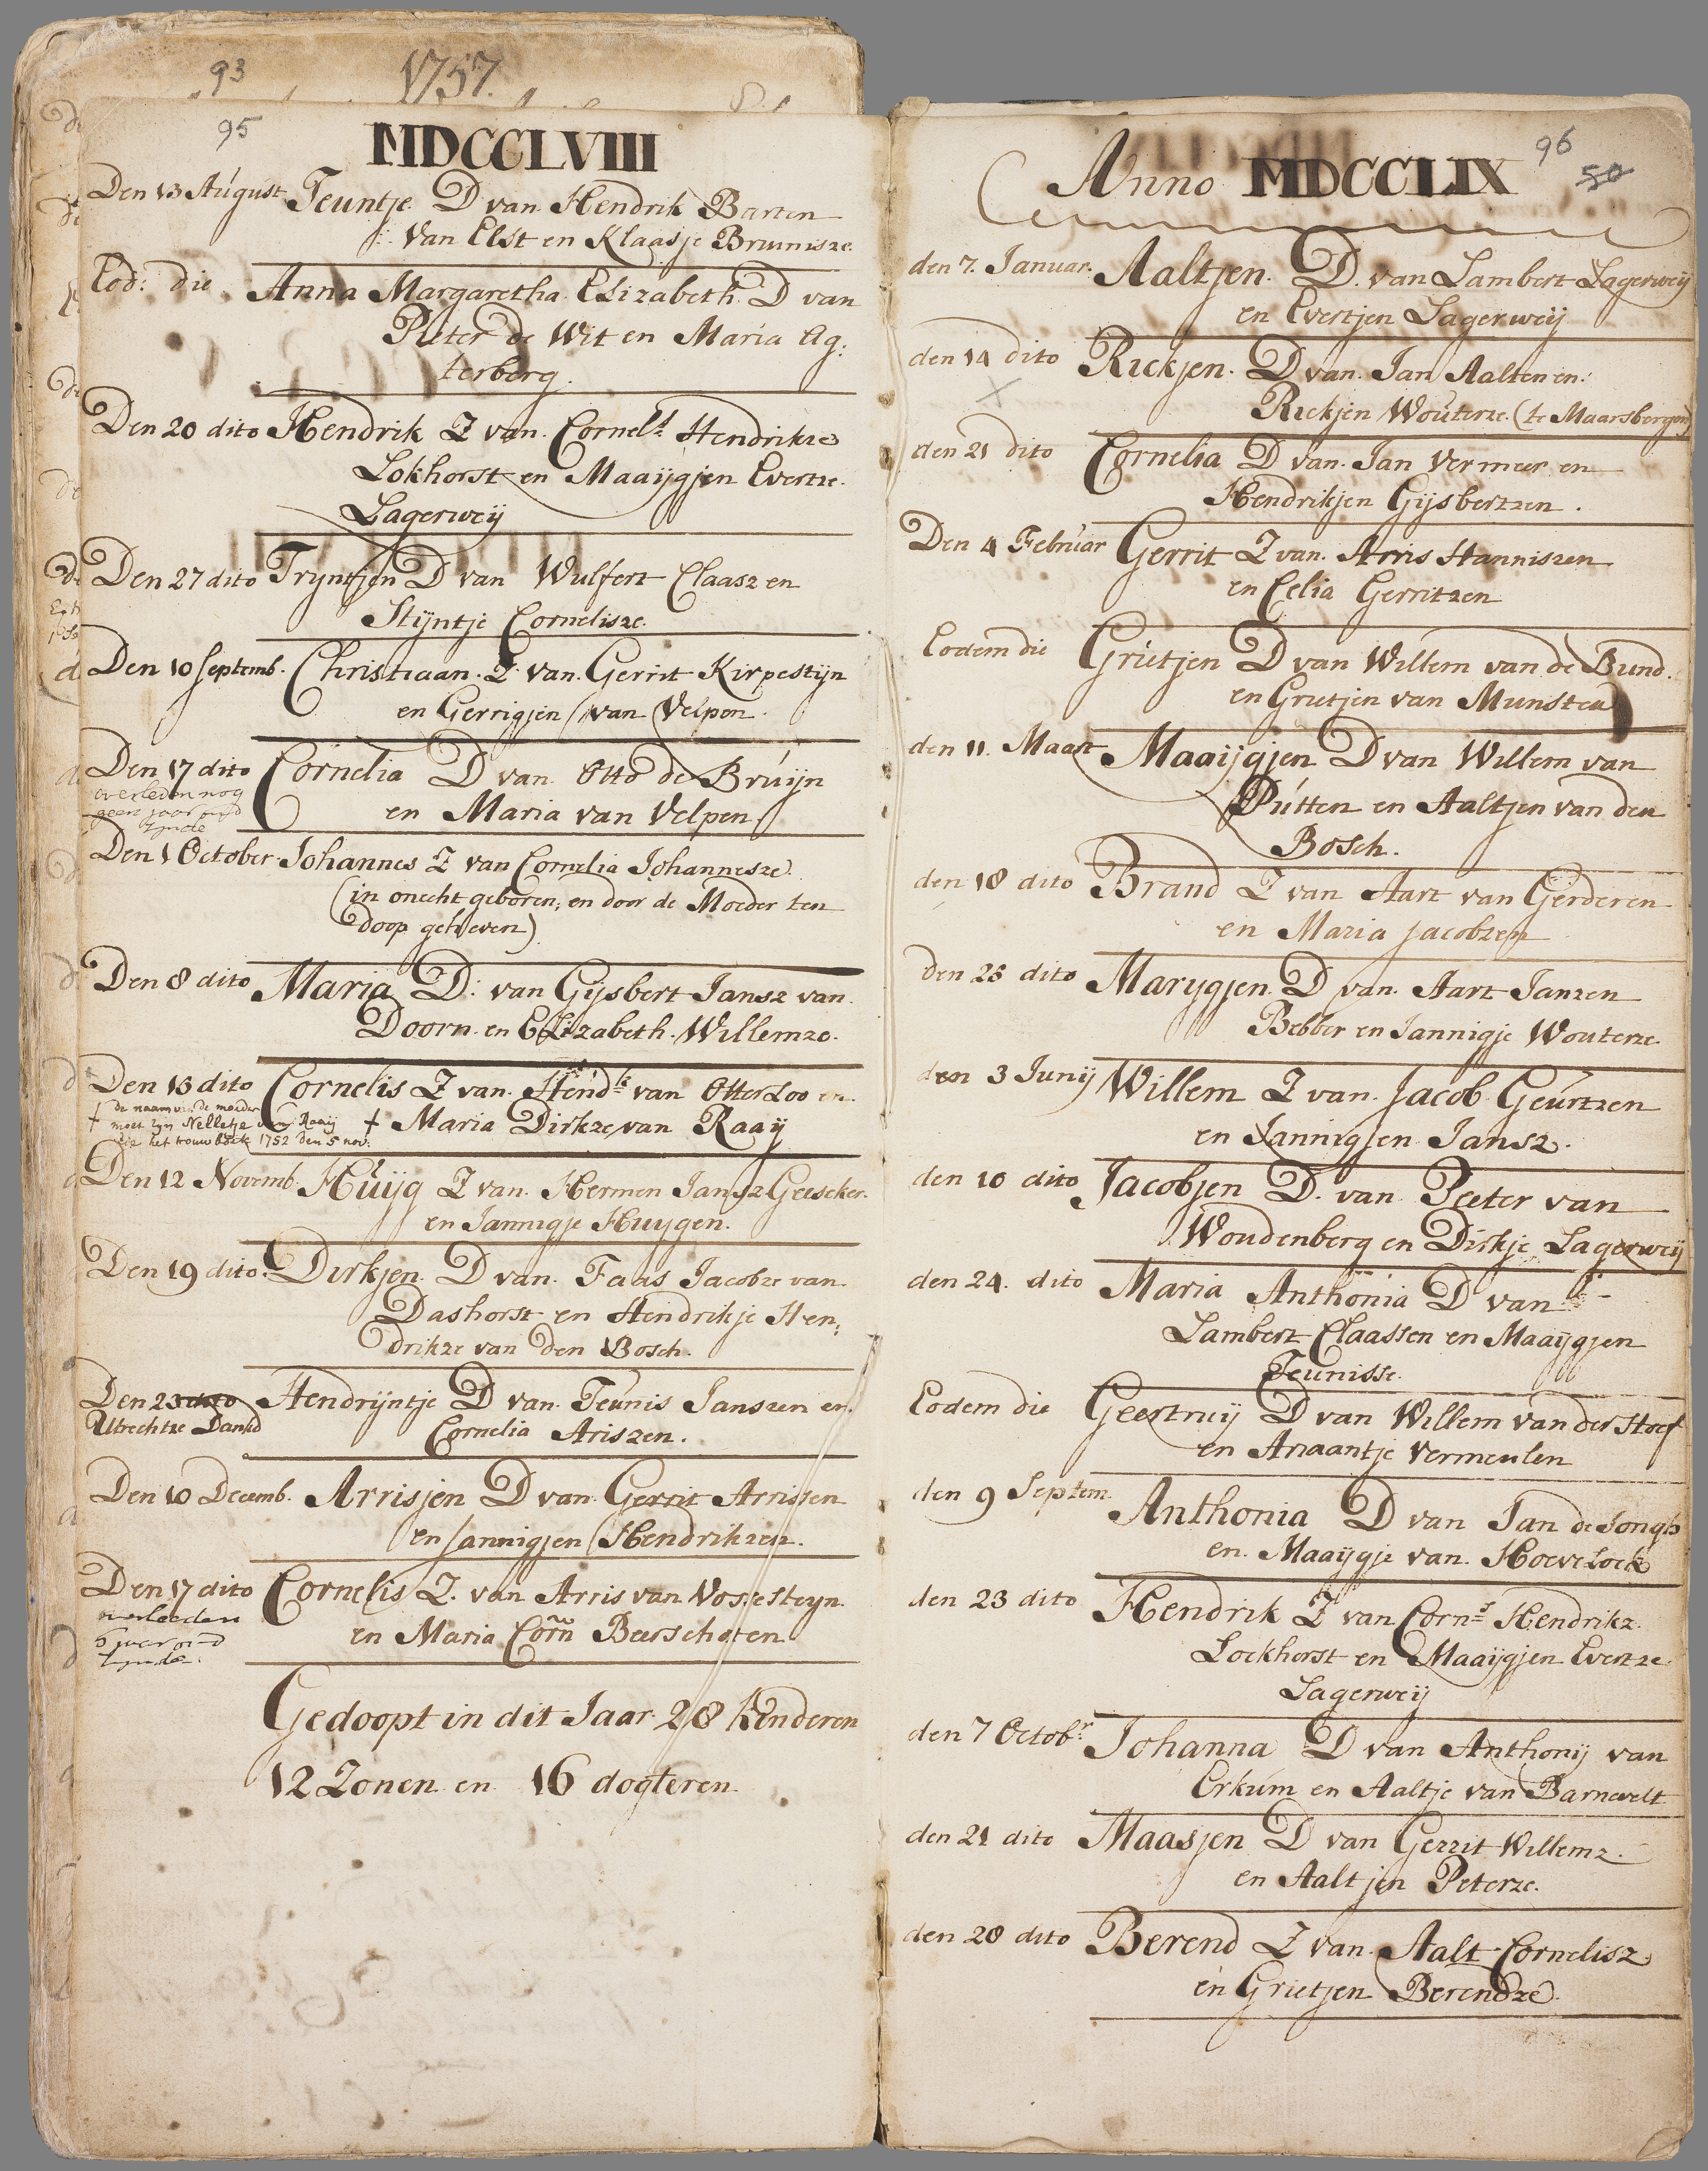 93
1757.
95
MDCCLVIII
Den 13 August Teuntje. D van Hendrik Barten
Van Elst en Klaasje Brunisze.
Eod: die Anna Margaretha Elizabeth. D van
Pieter de Wit en Maria Ag:
terberg.
Den 20 dito Hendrik Z van Cornels Hendrikze
Lokhorst en Maaijgjen Evertze.
Lagerweij
Den 27 dito Tryntjen D van Wulfert Claasz en
Stijntje Cornelisze.
Den 10 Septemb. Christiaan. Z van. Gerrit Kirpestijn
en Gerrigjen van Velpen.
Den 17 dito Cornelia D van Otto de Bruijn
overleden nog
geen jaar oud
zijnde
en Maria van Velpen
Den 1 October Johannes Z van Cornelia Johannesze.
(in onecht geboren, en door de Moeder ten
doop geheven)
Den 8 dito Maria D: van Gijsbert Jansz van
Doorn. en Elizabeth. Willemze.
Den 13 dito Cornelis Z van Hendk van Otterloo en
† Maria Dirkze van Raaij
† de naam van de moeder
moet zijn Nelletje van Raaij
zie het trouwboek 1752 den 5 nov:
Den 12 Novemb. Huijg Z van. Hermen Jansz Geeseker.
en Jannigje Huygen.
Den 19 dito. Dirkjen. D van. Faas Jacobze van
Dashorst en Hendrikje Hen;
drikze van den Bosch.
Den 23 dito Hendrijntje D van Teunis Janszen en
Utrechtze Dankd Cornelia Ariszen.
Den 10 Decemb. Arrisjen D van Gerrit Arrissen
en Jannigjen Hendrikzen.
Den 17 dito Cornelis Z. van Arris van Vossesteyn
overleeden
5 jaer oud
zynde.
en Maria Corñ Beerschoten
Gedoopt in dit Jaar 28 Kinderen
12 Zonen en 16 dogteren.
96
50
Anno MDCCLIX
den 7. Januar. Aaltjen. D. van Lambert Lagerweij
en Evertjen Lagerweij
den 14 dito Rickjen. D van. Jan Aalten en.
Rickjen Wouterze (te Maarsbergen)
den 21 dito Cornelia D van. Jan Vermeer en
Hendrikjen Gijsbertzen.
Den 4 Februar Gerrit Z van. Arris Hanniszen
en Celia Gerritzen
Eodem die Grietjen D van Willem van de Bund.
en Grietjen van Munster
den 11. Maart Maaijgjen D van Willem van
Putten en Aaltjen van den
Bosch.
den 18 dito Brand Z van Aart van Gerderen
en Maria Jacobzen
den 25 dito Marygjen. D van. Aart Janzen
Bebber en Jannigje Wouterze.
den 3 Junij Willem Z van. Jacob Geurtzen
en Jannigjen Jansz.
den 10 dito Jacobjen D. van Peeter van
Woudenberg en Dirkje Lagerweij
den 24. dito Maria Anthonia D van
Lambert Claassen en Maaijgjen
Teunisse.
Eodem die Geertruij D van Willem van der Hoef
en Anaantje Vermeulen
den 9 Septem Anthonia D van Jan de Jongh
en. Maaijgje van. Hoevelock
den 23 dito Hendrik Z van Corns Hendrikz.
Lockhorst en Maaijgjen Evertze
Lagerweij
den 7 Octobr Johanna D van Anthonij van
Erkum en Aaltje van Barnevelt
den 21 dito Maasjen D van Gerrit Willemz.
en Aaltjen Peterze.
den 28 dito Berend Z van. Aalt Cornelisz
en Grietjen Berendze.